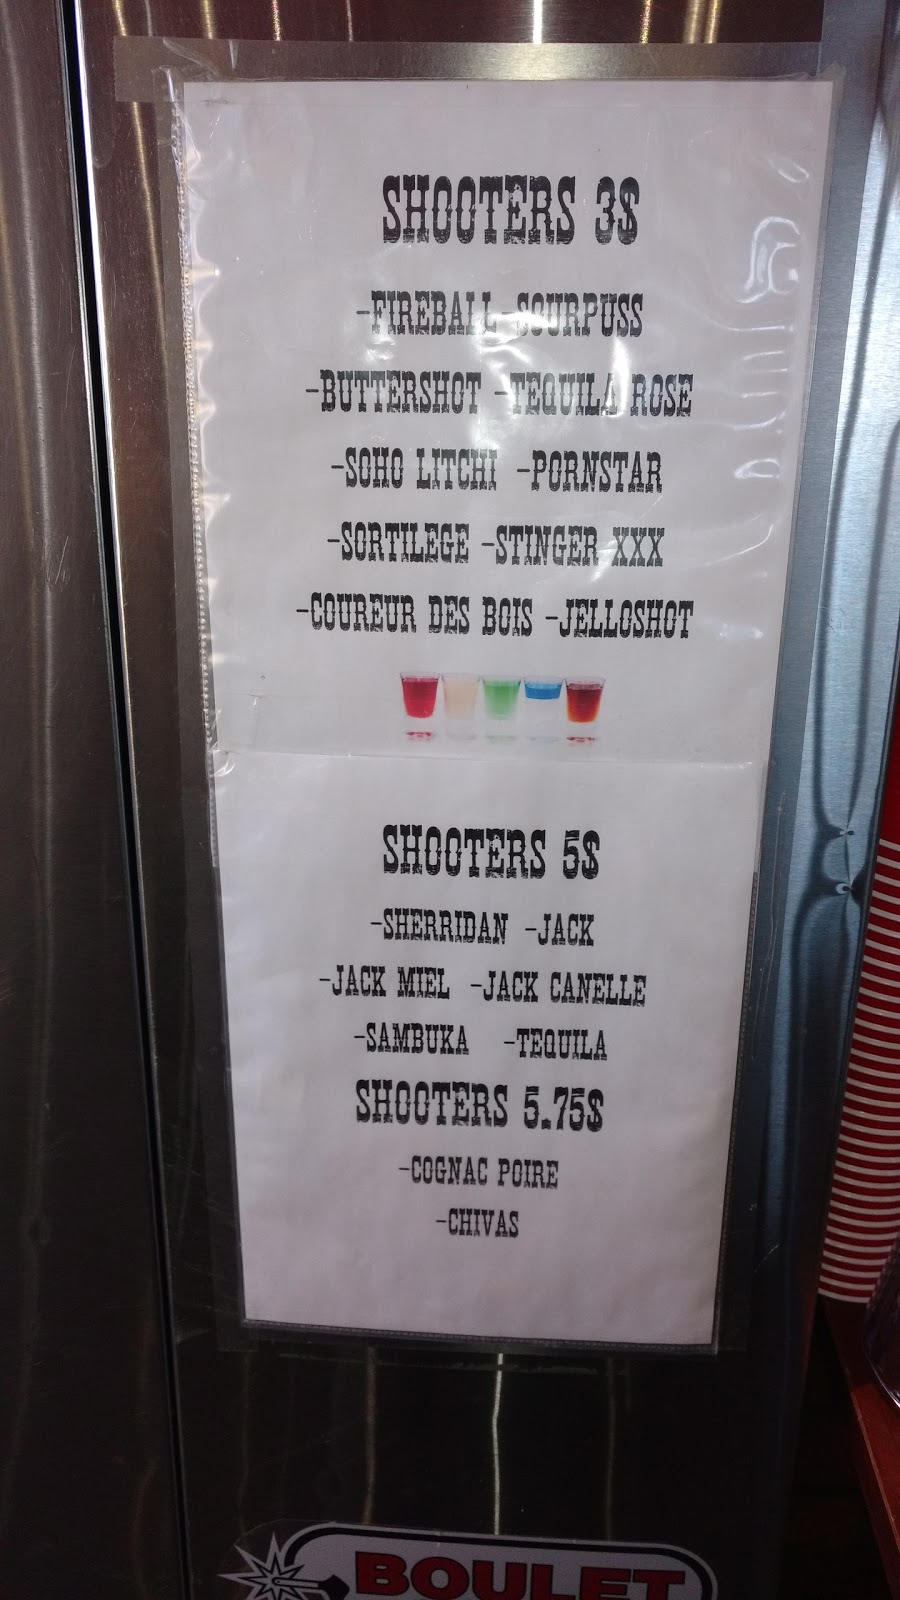 SHOOTERS 3$
-FIREBALL -SOURPUSS
-BUTTERSHOT -TEQUILA ROSE
-SOHO LITCHI -PORNSTAR
-SORTILEGE -STINGER XXX
-COUREUR DES BOIS -JELLOSHOT
SHOOTERS 5$
-SHERRIDAN -JACK
-JACK MIEL -JACK CANELLE
-SAMBUKA -TEQUILA
SHOOTERS 5.75$
-COGNAC POIRE
-CHIVAS
BOULET